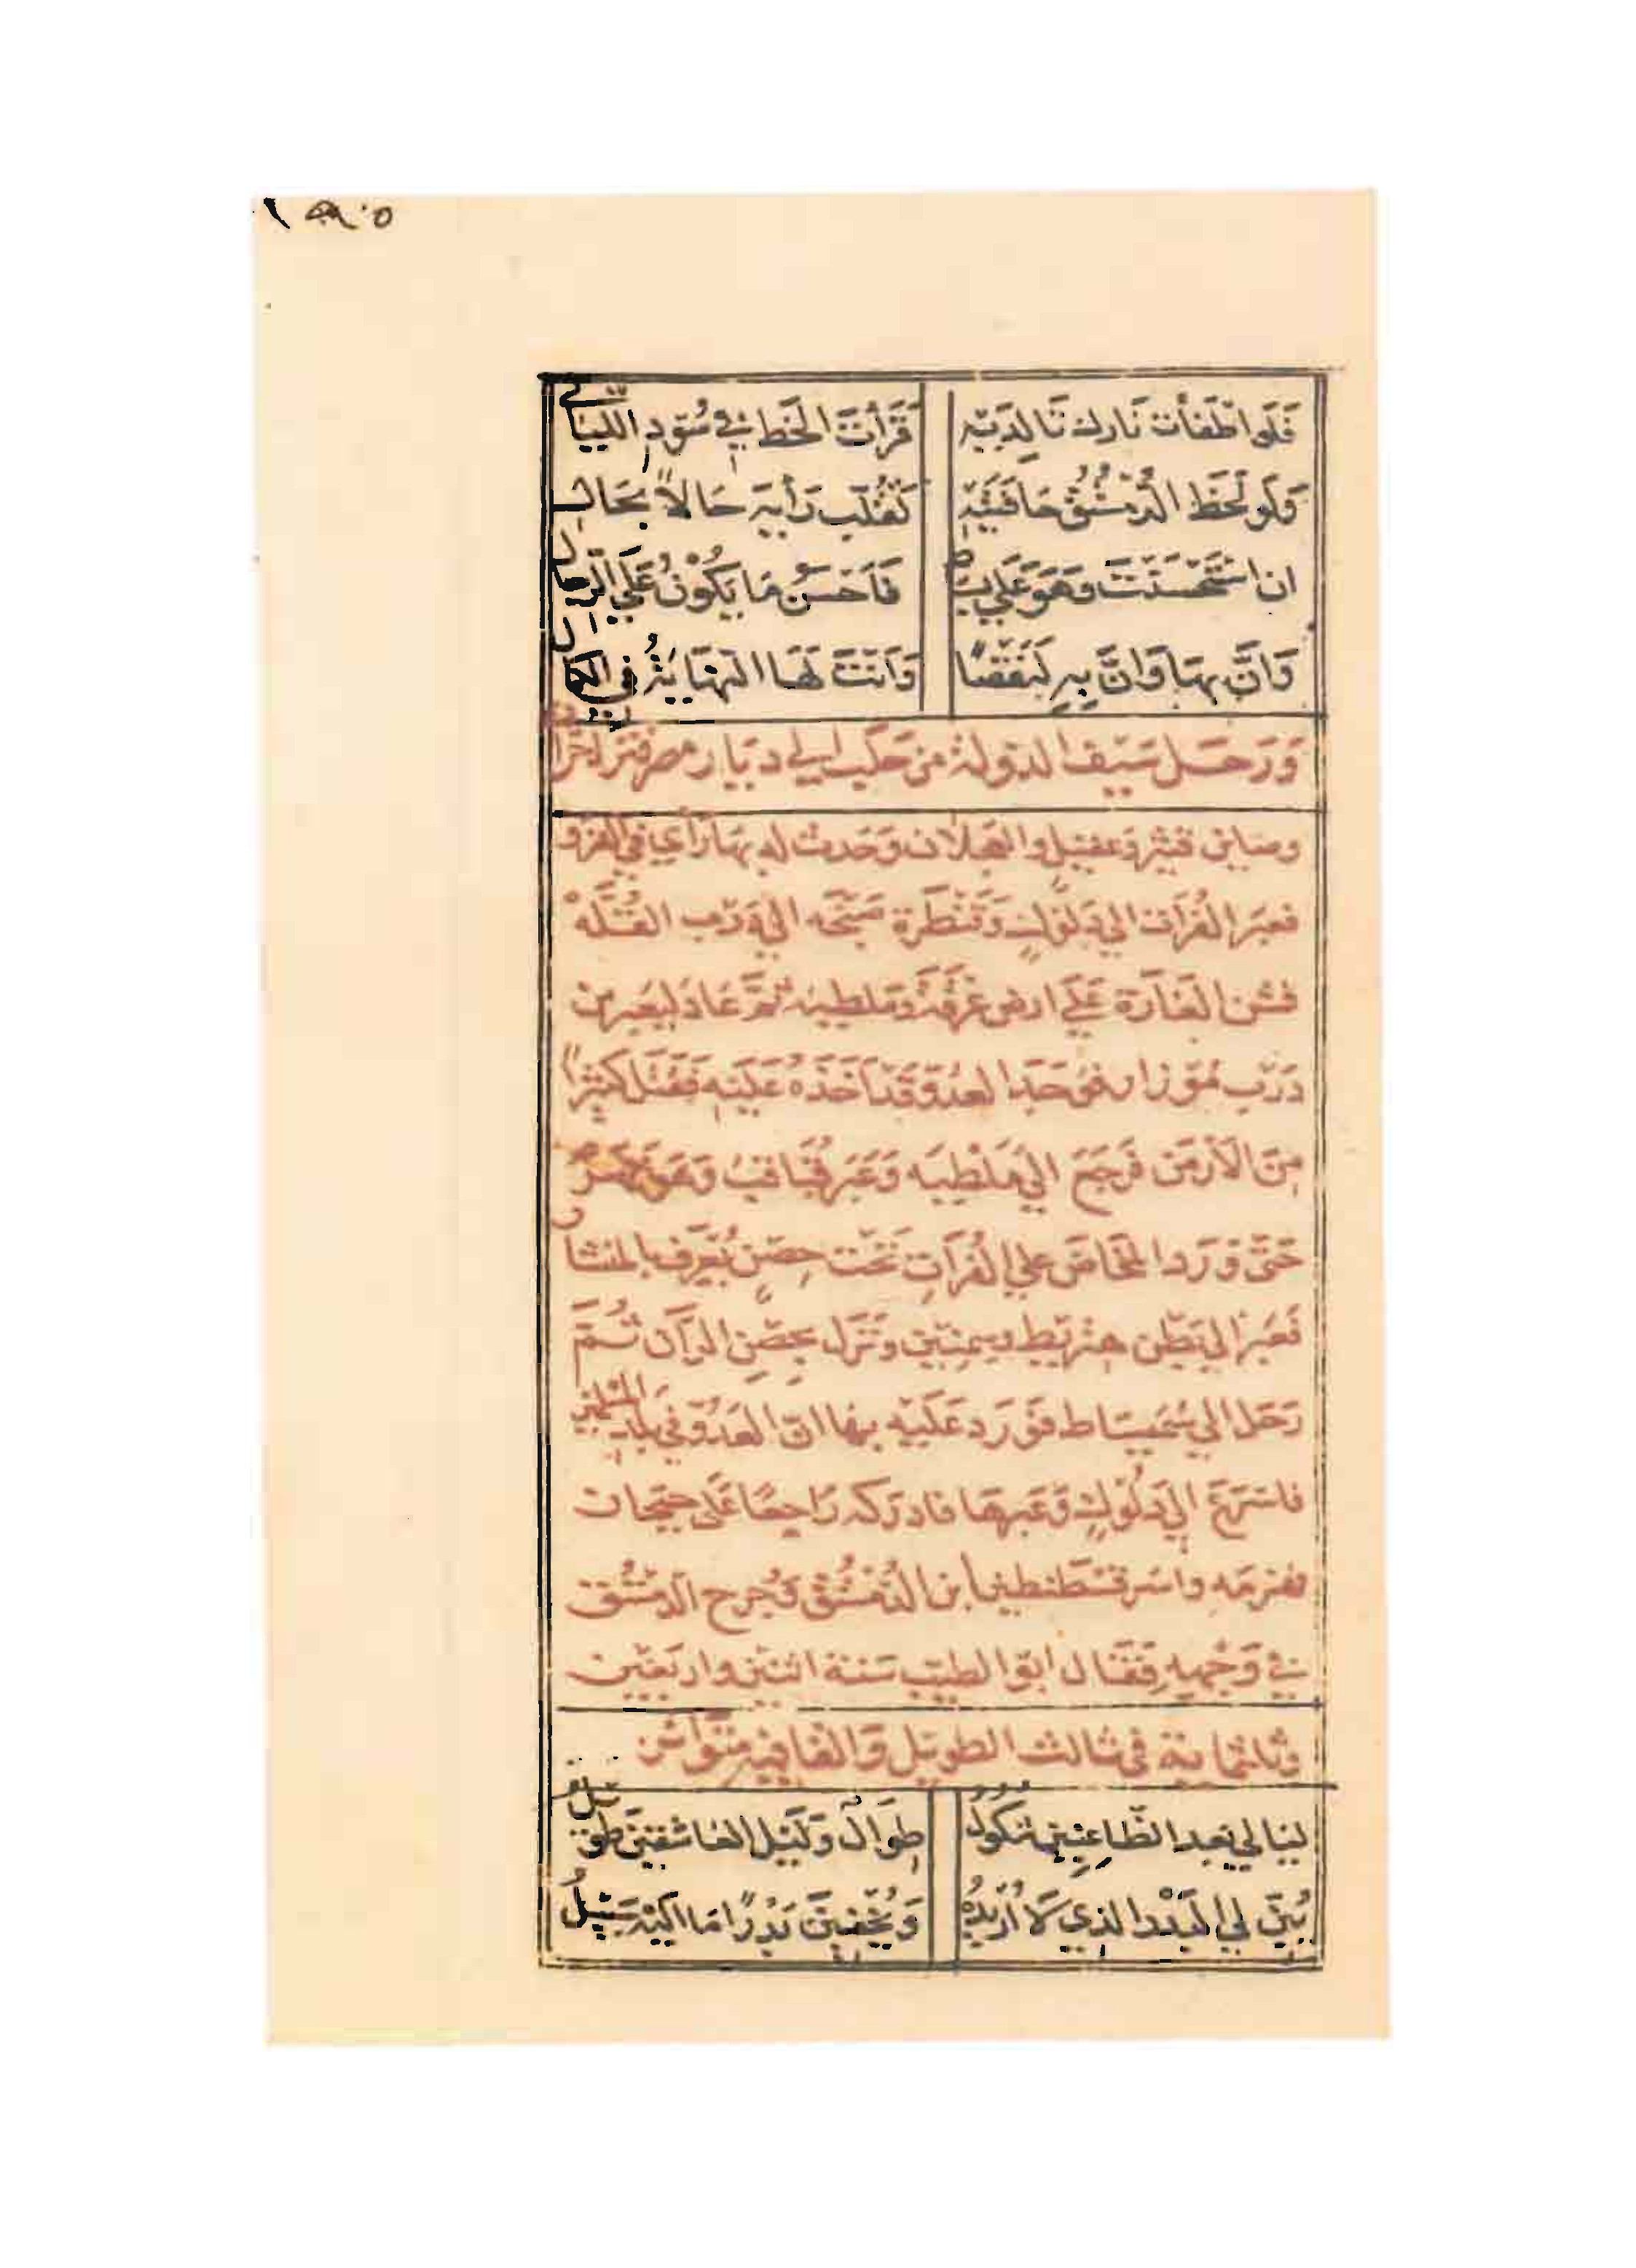 فَلَو اطْفَأْت نَارك تَا لِدَيْهِ قَرَأْتَ الخَطَّ فِي سُودِ اللّيَالي
وَلَو لَحَظ الدُّمُسْتُقُ حَافَتَيْهِ لَقَلَّبَ رَأْيَه حَالاً بِحَالِ
ان اسْتَحْسَنْتَ وهَوَ عَلَي بِسَاط فَاَحْسَنُ مَا يَكُوْنُ عَلَي الرّجال
وَانَّ بِهَا وَانَّ بِهِ لَنَقْصًا وَاَنْتَ لَهَا النّهَايَةُ فِي الكمال
وَرَحَل سَيْف الدَولة مِن حَلَب اِلي دِيَار مضر
وعقيل والعجلان وَحَدث له بِهَا رَأي في الغزو
فعَبَر الفُرَات الي دَلُوْك وَقَنْطَرة صَنْجَه الي دَرْب القُلَّهْ
فشن الغَارَة عَلَي ارض عَرْقَة وَملطيه ثمَّ عَادَ لِيَعْبر من
دَرْبِ مَوْزار فوَجَد العدُوّ قَد اَخَذَهُ عَلَيْهِ فَقَتَل كثيرًا
مِنَ الاَرْمَن فَرَجَعَ الي مَلَطْيَه وَعَبَر قُبَاقِبُ وَهُوَ نَهْر
حَتَّي وَرَد المَخَاضَ عَلي الفُرَاتِ تَحْتَ حِصْنٍ يُعْرَف بالمنشار
فَعَبَر الي بَطْن هِنْزِيط وسِمنِيْن ونَزل بِحِصْنِ الرَّان ثُمَّ
رَحَل الي سُمَيْسَاط فَوَرَد عَلَيْه بِهَا انّ العَدُوّ في بلد المسلمين
فاسْرَعَ الي دَلُوْكٍ وَعَبرهَا فادرَكه رَاجِعًا عَلَى جَيْحَان
فهزمه واسَر قسْطنطين ابن الدُّمُسْتُق وَجُرح الدّمُسْتُق
فِي وَجْهِهِ فَقَال ابوالطيب سَنة اثنتين واربَعِيْن
وثلثماية في ثالث الطويل وَالقافيه مُتَوَاتر
ليَالي بَعد الظّاعِنِيْن شُكُولُ طِوَالٌ وَلَيْل العَاشقينَ طويل
يُبِنّ لي البَدْر الذي لاَ اُرِيْدُهُ وَيُخْفِيْنَ بَدْرًا مَا اليْهِ سَبِيلُ